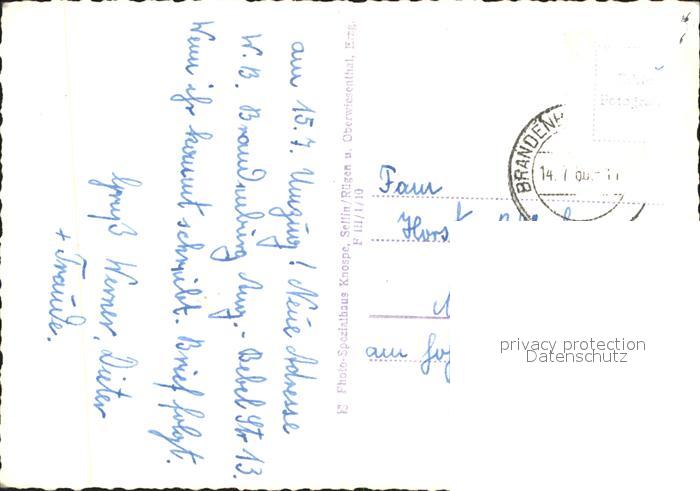 am 15.7. Umzug! Neue Adresse
W.B. Brandenburg Aug.-Bebel Str 13.
Wenn ihr kommt schreibt. Brief folgt.
Gruß Werner, Dieter
+ Traude.
Photo-Spezialhaus Knospe, Sellin/Rügen u. Oberwiesenthal, Erzg.
F III/1/10
BRANDEN
14.7
Fam
Hors
am
privacy protection
Datenschutz